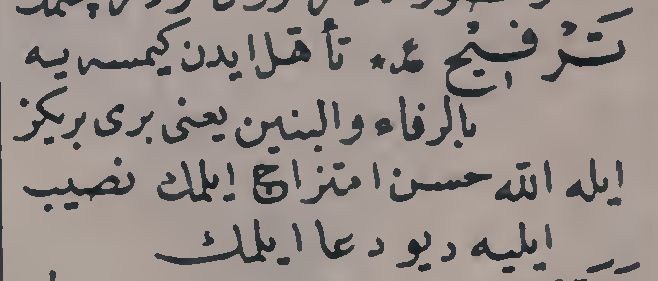 تَرْفِيْح عـ٠ تأهل ايدن كيمسه يه
بالرفاء والبنين يعنى برى بريكز
ايله الله حسن امتزاج ايلمك نصيب
ايليه ديو دعا ايلمك